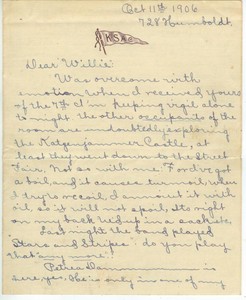 Oct 11th 1906
728 Humboldt.
KSAC
Dear Willis:
Was overcome with
emotion when I received yours
of the 7th. I'm keeping vigil alone
to night the other occupants of the
room are undoubtedly exploring
the Katzenjammer Castle, at
least they went down to the Street
Fair. Not so with me. For I've got
a boil, and it causes turmoil when
I try to recoil, I annoint it with
oil, so it will not spoil, its right
on my back
Last night the band played
"Stars and Stripes": do you play
that any more?
is
here yes. She is only in one of my